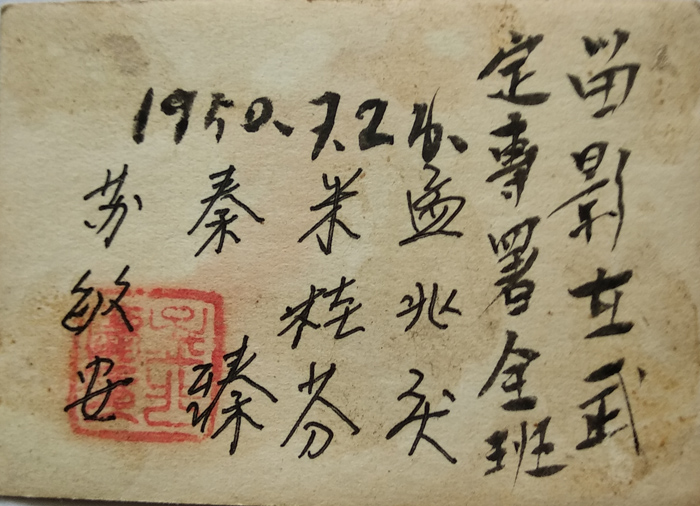 留影在武
定專署全班
1950.7.26.
孟兆
米桂芬
秦臻
苏敏安